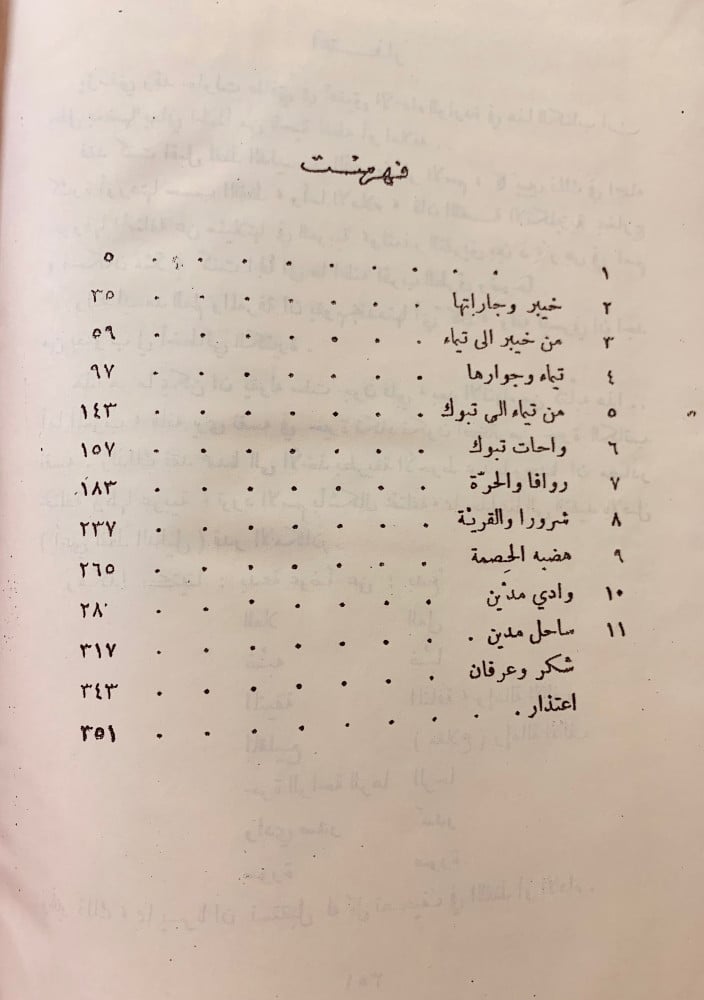 فهرست
١ . . . . . . . . ٥
٢ خيبر وجاراتها . . . . . . . ٣٥
٣ من خيبر الى تيماء . . . . . . . ٥٩
٤ تيماء وجوارها . . . . . . . ٩٧
٥ من تيماء الى تبوك . . . . . . . ١٤٣
٦ واحات تبوك . . . . . . . ١٥٧
٧ روافا والحرّة . . . . . . . ١٨٣
٨ شرورا والقريّة . . . . . . . ٢٣٧
٩ هضبه الحِصمة . . . . . . . ٢٦٥
١٠ وادي مديْن . . . . . . . ٢٨٠
١١ ساحل مدين . . . . . . . . ٣١٧
شكر وعرفان . . . . . . . ٣٤٣
اعتذار . . . . . . . . . ٣٥١